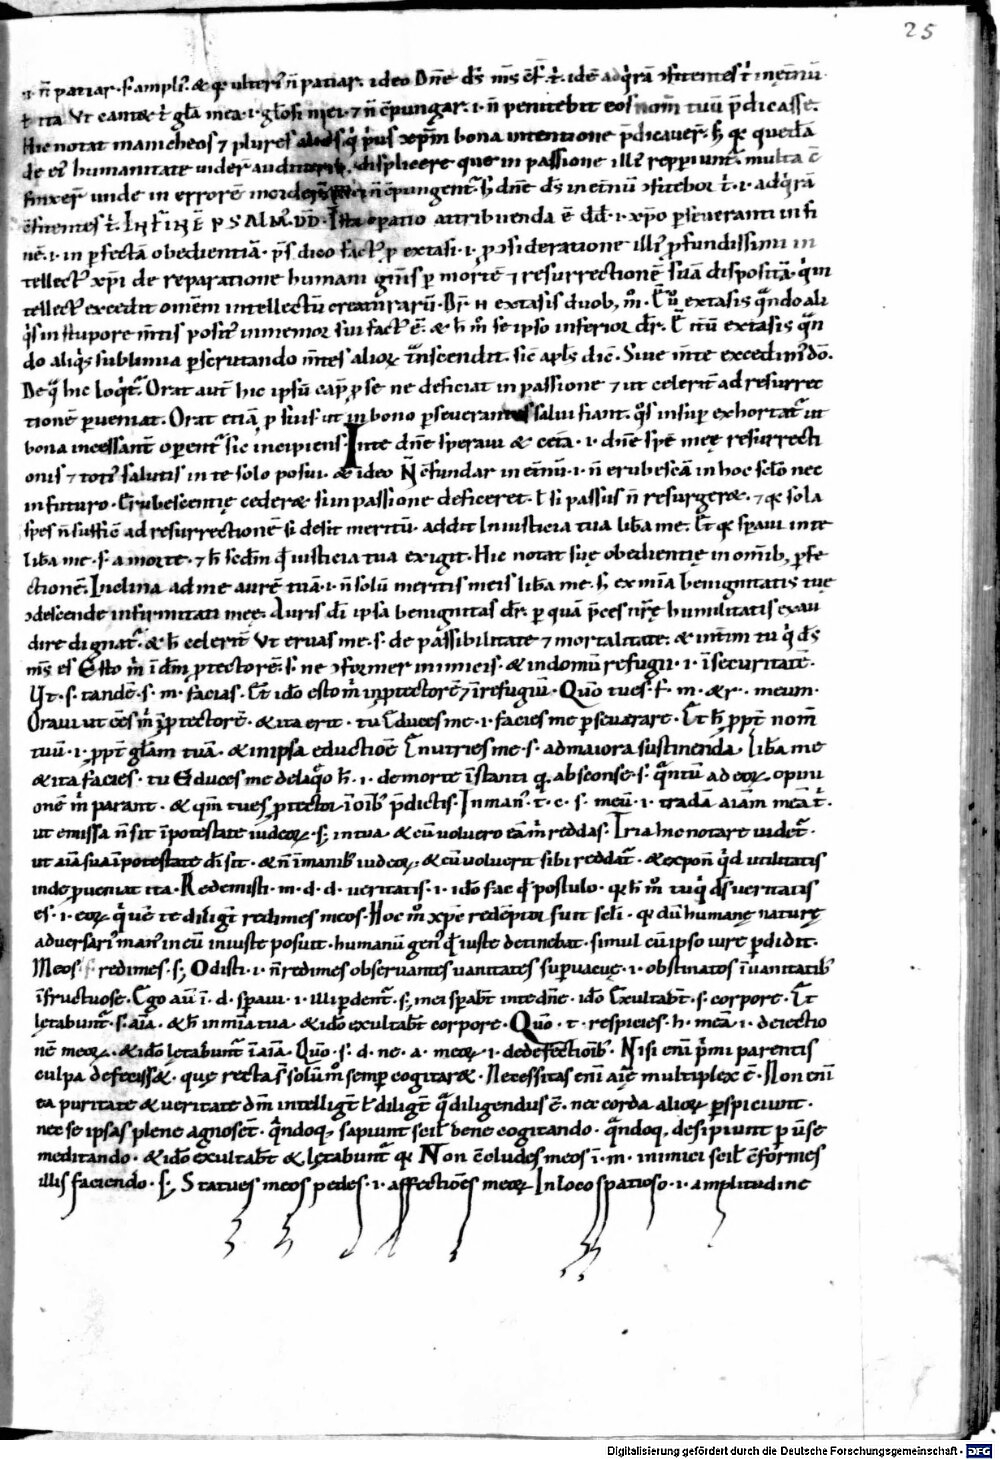 25
.i. n̄ patiar. s. ampli᾽. & qđ ulteri᾽ n̄ patiar. ideo Dn̄e ds̄ ms̄ īet̄. t̄. idē adq̇rā ↄfitentes t̄ inet̄nū
ł ita Ut cantet t̄ gl̄a mea .i. gl̄osi mei. ⁊ n̄ cōpungar. .i. n̄ penitebit eos nom̄ tuū p̄dicasse.
Hic notat manicheos ⁊ plures q̇ ṗus xp̄m bona intentione p̄dicaver̄. s; qđ quedā
de ei᾽ humanitate uider̄ displicere que in passione illi᾽ repperiunt̄. multa ē
finxer̄ unde in errorē n̄ cōpungent᷑ s; dn̄e ds̄ in et̄nū ↄfitebor t̄. .i. adq̇rā
ↄfitentes t̄. IN FINĒ PSALM᾽. DD. Ista oratio attribuenda ē dd̄ .i. xp̄o p̱severanti in fi
nē. .i. in p̱fectā obedientiā. p̄s dico fact᾽ p̱ extasi .i. p̱ ↄsideratione illi᾽ p̱fundissimi in
tellect᾽ xp̄i de reparatione humani gn̄is p̱ mortē ⁊ resurrectionē suā disposita. q̇ in
tellect᾽ excedit om̄em intellectū creaturarū. Dr̄ n̄ extasis duob; m̊. Ē u̅ extasis qn̄do ali
q̇s in stupore m̄tis posit᾽ inmemor sui fact᾽ ē. & h̄ m̊ se ipso inferior dr̄. Ē itū extasis qn̄
do aliq̇s sublimia p̱scrutando m̄tes alioꝝ transcendit. sic̄ apl̄s dic̄. Siue m̄te excedim᾽ dō.
De q̇ hic loq̇t᷑. Orat aut̄ hic ipsū cap̄ p̱ se ne deficiat in passione ⁊ ut celerit̄ ad resurrec
tionē p̱ueniat. Orat etiā p̱ suis ut in bono p̱seuerantes salui fiant. q̊s insup̱ exhortat᷑ ut
bona incessant̄ op̱ent᷑ sic incipiens. Inte dn̄e speraui & cet̄a. .i. dn̄e spē meę resurrecti
onis ⁊ toti᾽ salutis in te solo posui. & ideo N̄ cōfundar in et̄nū. .i. n̄ erubescā in hoc scl̄o nec
in futuro. Erubescentię cederet si in passione deficeret. ł si passus n̄ resurgeret. ⁊ qđ sola
spes n̄ suffic̄ ad resurrectionē si desit meritū. addit In iusticia tua libā me. Et qđ sp̱aui inte
libā me. s. a morte. ⁊ h̄ sc̄dm qđ iusticia tua exigit. Hic notat suę obedientię in om̄ib; p̱fe
ctionē. Inclina ad me aurē tuā. .i. n̄ solū meritis meis libā me. s; ex m̄ia benignitatis tuę
ↄdescende infirmitati meę. Auris dī ipsa benignitas dr̄. p̱ quā p̄ces nr̄ę humilitatis exau
dire dignat᷑. & h̄ celerit̄ Ut eruas me. s. de passibilitate ⁊ mortalitate. & int̄im tu q̇ ds̄
ms̄ es Esto ṁ ī dm̄ p̱tectorē. s. ne ↄformer inimicis. & in domū refugii. .i. ī securitatē.
Ut. s. tandē. s. m. facias. Et ido esto ṁ in p̱tectorē ⁊ in refugiū. Qūo tu es. f. m. & r. meum.
Oraui ut ees ṁ ī p̱tectorē. & ita erit. tu Educes me. .i. facies me p̱seuerare. Et h̄ p̱pt̄ nom̄
tuū. .i. p̱pt̄ gl̄am tuā. & in ipsa eductiōe Enutries me. s. ad maiora sustinenda. Libā me
& ita facies. tu Educes me de laq̊o h̄. .i. de morte īstanti q̇ absconse. s. q̇ntū ad eoꝝ opini
onē ṁ parant. & qm̄ tu es p̱tector ī oīb᾽ p̄dictis. In man᾽. t. c. s. meū. .i. tradā aīam meā t̄.
ut emissa n̄ sit ī potestate iudeoꝝ. s; in tua. & cū voluero eā ṁ reddas. Tria hic notare uidet᷑.
ut aīa sua ī potestate dī sit. & n̄ ī manib᾽ iudeoꝝ. & cū voluerit sibi reddat᷑. & expon̄ q̇d utilitatis
inde p̱ueniat ita. Redemisti. m. d. d. veritatis. .i. ido fac qđ postulo. qđ h̄ m̊ tu q̇ ds̄ veritatis
es. .i. eoꝝ q̇ uē te diligt̄ redimes meos. Hoc m̊ xpē redēptor fuit seli. qđ dū humanę naturę
adversari᾽ man᾽ in cū iniuste posuit. humanū gen᾽ qđ iuste detinebat. simul cū ipso iure p̱didit.
Meos s. redimes. s; Odisti .i. n̄ redimes observantes vanitates sup̱vacuę. .i. obstinatos ī uanitatib᾽
īfructuose. Ego aū ī. d. sp̱aui. .i. illi p̱dent̄. s; mei sp̱abt̄ inte dn̄e. ido Exultabt̄. s. corpore. Et
lętabunt᷑. s. aīa. & h̄ in m̄ia tua. & ido exultabt̄ corpore. Qūo. t. respicies. h. meā .i. deiectio
nē meoꝝ. & ido lętabunt᷑ ī aīa. Qūo. s. d. ne. a. meoꝝ .i. de defectionib᾽. Nisi enī ṗmi parentis
culpa defecisset. quę recta s̄ solum̊ semp̱ cogitaret. Necessitas enī aīę multiplex ē. Non enī
ea puritate & veritate dm̄ intelligt̄ ł diligt̄ q̇ diligendus ē. nec corda alioꝝ p̱spiciunt.
nec se ipsas plene agnosct̄. q̇ndoq; sapiunt scil̄ bene cogitando. q̇ndoq; desipiunt p̱ūse
meditando. & ido exultabt̄ & lętabunt᷑ qđ Non cōcludes meos ī. m. inimici scil̄ cōformes
illis faciendo. s; Statues meos pedes .i. affectiōes meoꝝ In loco spatioso .i. amplitudine
Digitalisierung gefördert durch die Deutsche Forschungsgemeinschaft - DFG